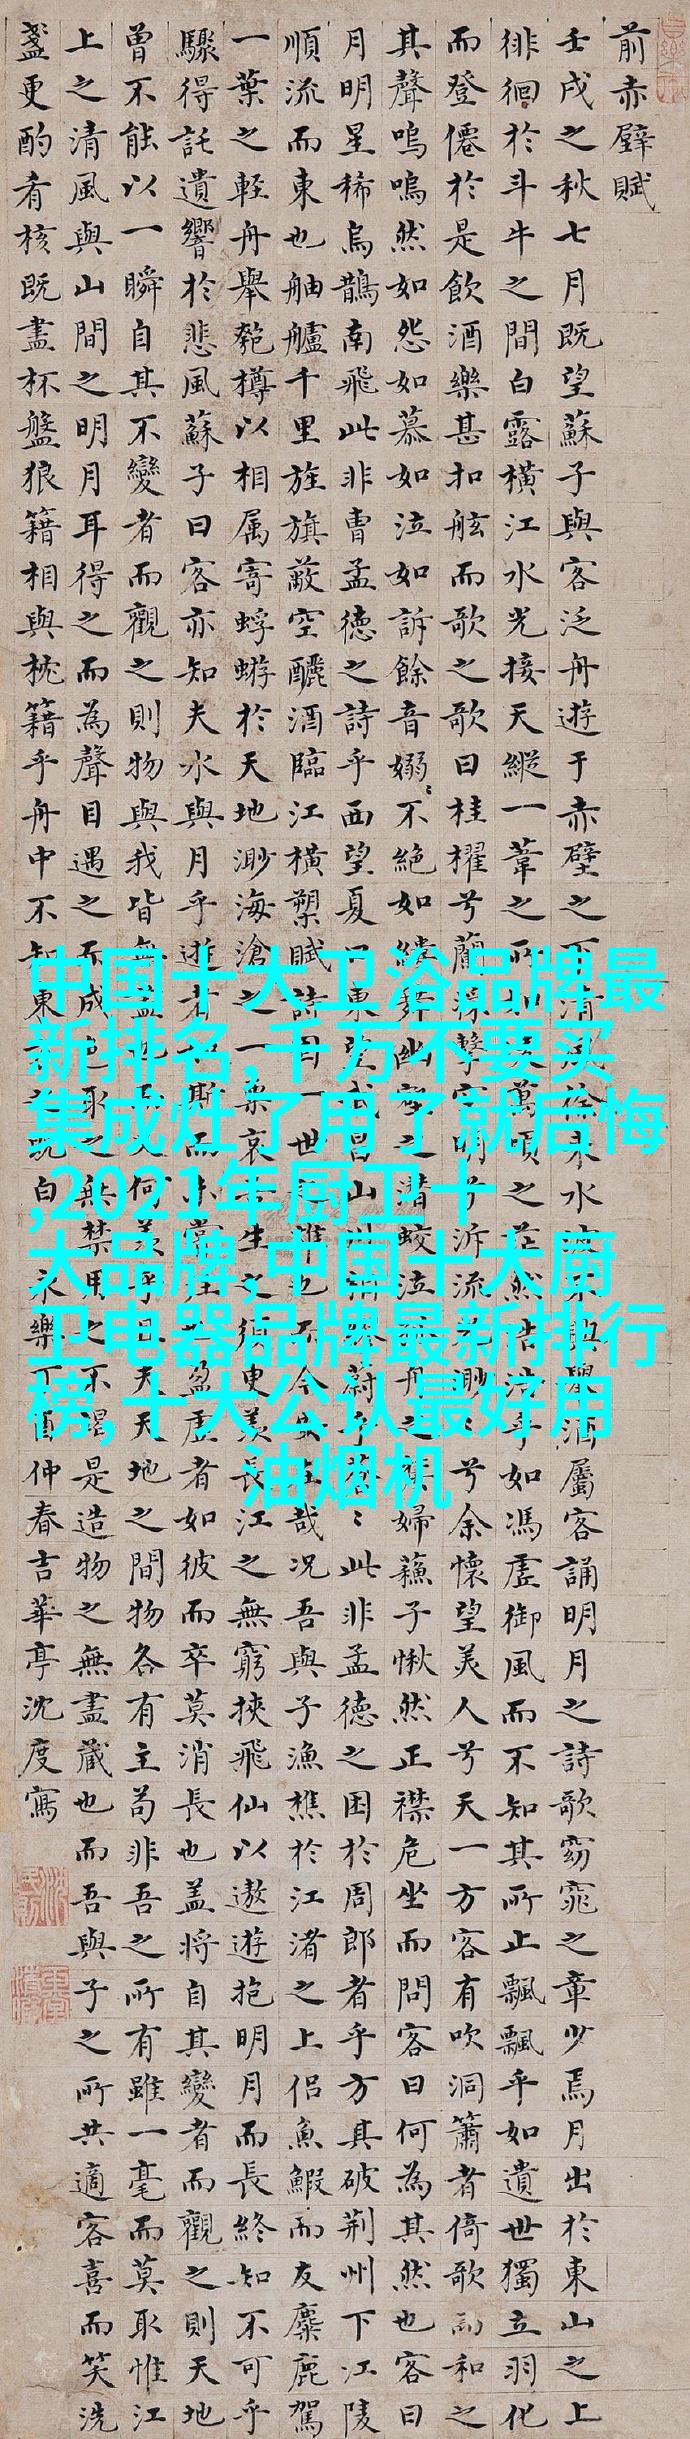 前赤壁賦
壬戌之秋七月既望蘇子與客泛舟遊于赤壁之下清風徐來水波不興舉酒屬客誦明月之詩歌窈窕之章少焉月出於東山之上
徘徊於斗牛之間白露橫江水光接天縱一葦之所如凌萬頃之茫然浩浩乎如馮虛御風而不知其所止飄飄乎如遺世獨立羽化
而登僊於是飲酒樂甚扣舷而歌之歌曰桂櫂兮蘭槳擊空明兮泝流光渺〻兮余懷望美人兮天一方客有吹洞簫者倚歌而和之
其聲嗚嗚然如怨如慕如泣如訴餘音嫋〻不絕如縷舞幽壑之潛蛟泣孤舟之嫠婦蘇子愀然正襟危坐而問客曰何為其然也客曰
月明星稀烏鵲南飛此非曹孟德之詩乎西望夏口東望武昌山川相繆鬱乎蒼〻此非孟德之困於周郎者乎方其破荊州下江陵
順流而東也舳艫千里旌旗蔽空釃酒臨江橫槊賦詩固一世之雄也而今安在哉況吾與子漁樵於江渚之上侶魚鰕而友麋鹿駕
一葉之輕舟舉匏樽以相属寄蜉蝣於天地渺海滄之一粟哀吾生之須臾羨長江之無窮挾飛仙以遨遊抱明月而長終知不可乎
驟得託遺響於悲風蘇子曰客亦知夫水與月乎逝者如斯而未嘗往也盈虛者如彼而卒莫消長也蓋將自其變者而觀之則天地
曾不能以一瞬自其不變者而觀之則物與我皆無盡也而又何羨乎且夫天地之間物各有主苟非吾之所有雖一毫而莫取惟江
上之清風與山間之明月耳得之而為聲目遇之而成色取之無禁用之不竭是造物之無盡藏也而吾與子之所共適客喜而笑洗
盞更酌肴核既盡杯盤狼籍相與枕籍乎舟中不知東方之既白永樂丁酉仲春吉華亭沈度寫
中国十大卫浴品牌最
新排名,千万不要买
集成灶了用了就后悔
,2021年厨卫十
大品牌,中国十大厨
卫电器品牌最新排行
榜,十大公认最好用
油烟机